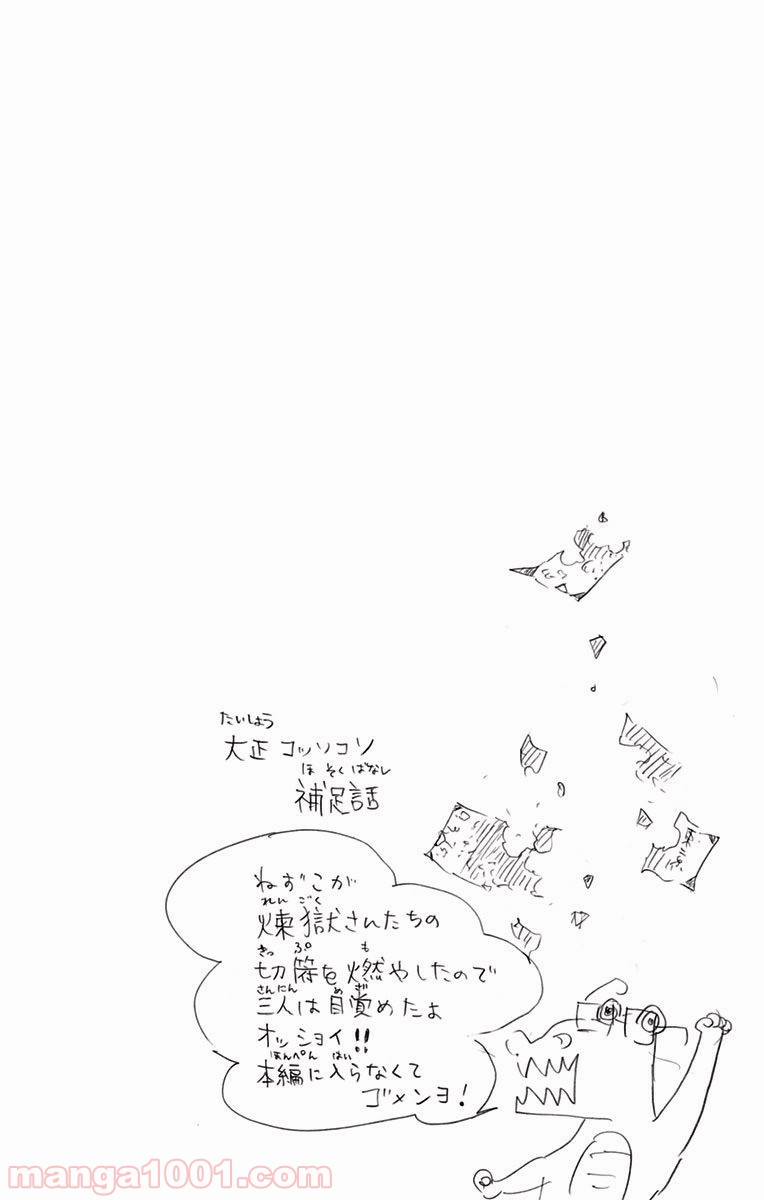 たいしょう
大正コッソコソ
ほそくばなし
補足話
ねずこが
れんごく
煉獄さんたちの
きっぷ も
切符を燃やしたので
さんにん めざ
三人は目覚めたよ
オッショイ!!
ほんぺん はい
本編に入らなくて
ゴメンヨ!
manga1001.com